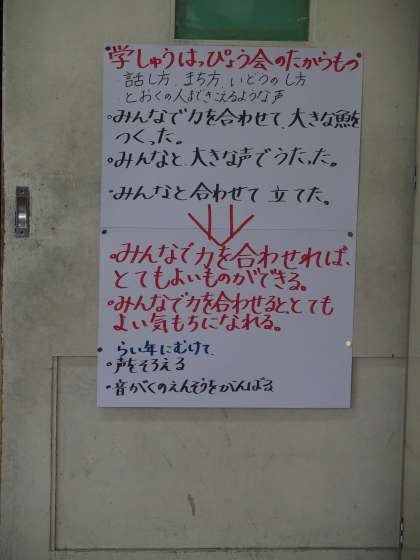 学しゅうはっぴょう会のたからもの
話し方、まち方、いどうのし方
とおくの人まできこえるような声
・みんなで力を合わせて、大きな魚を
つくった。
・みんなと、大きな声でうたった。
・みんなと合わせて 立てた。
・みんなで力を合わせれば、
とてもよいものができる。
・みんなで力を合わせると、とても
よい気もちになれる。
らい年にむけて、
・声をそろえる
・音がくのえんそうをがんばる